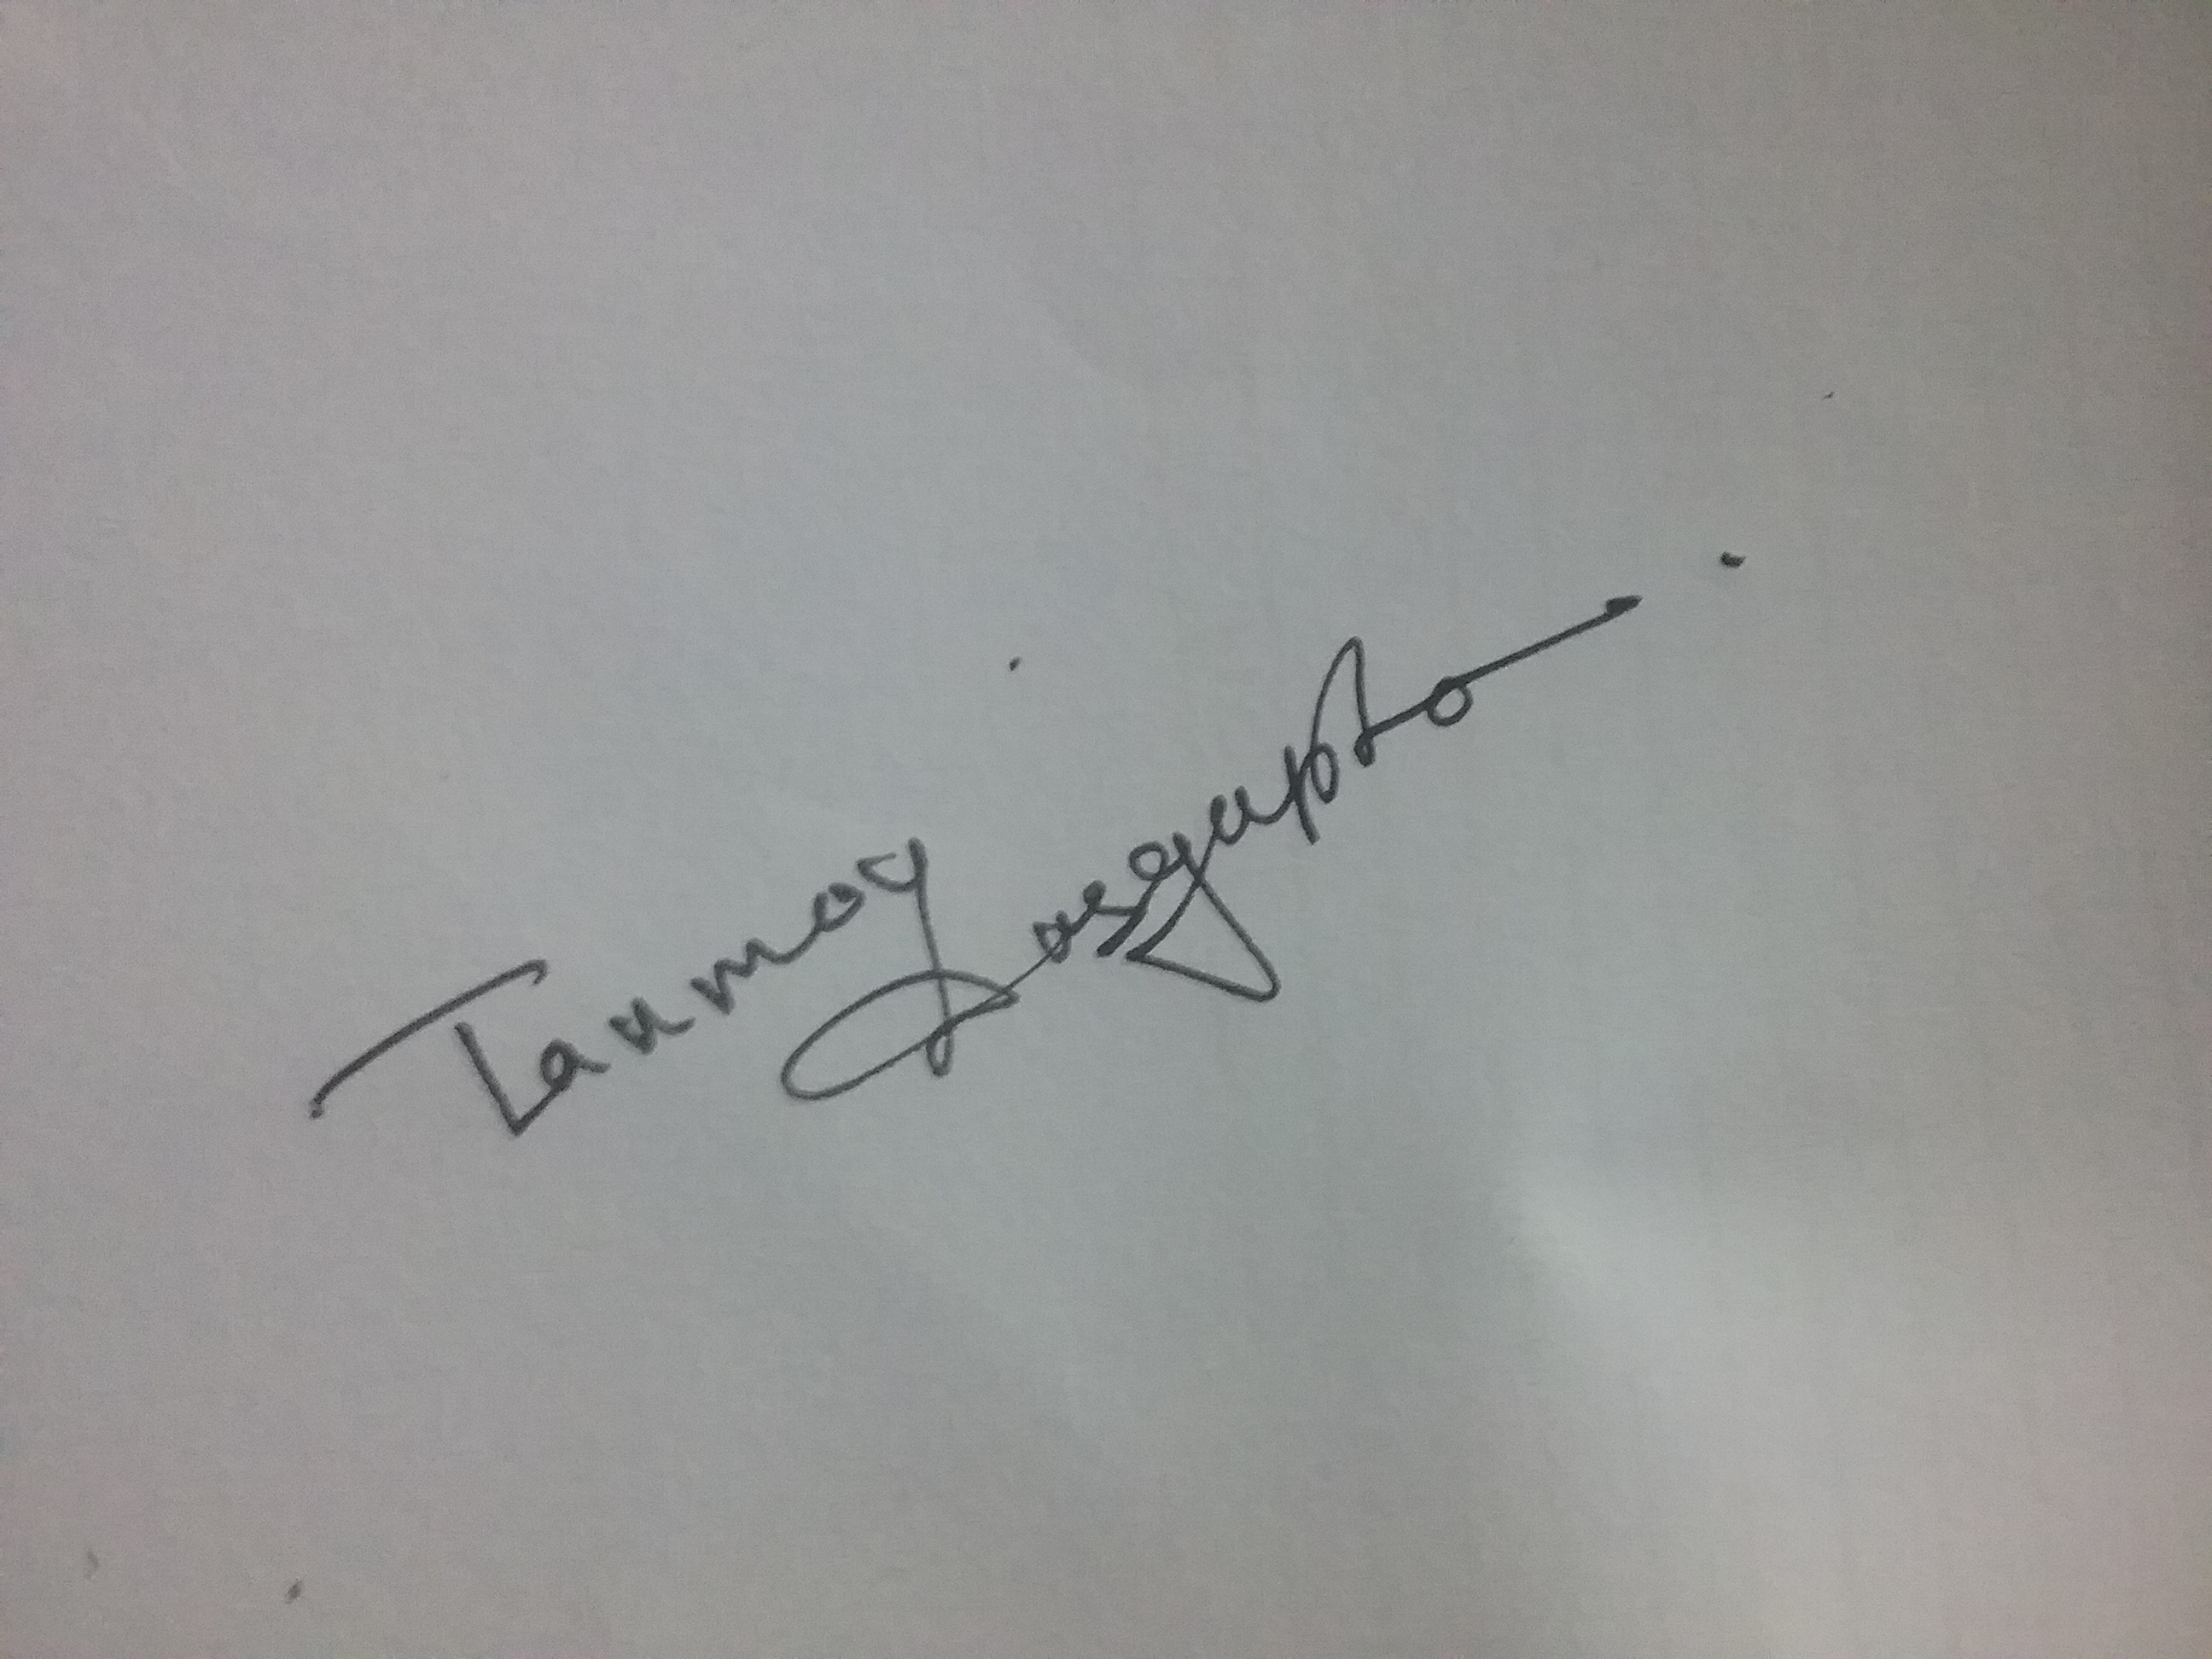 Tanmoy Dasgupta.